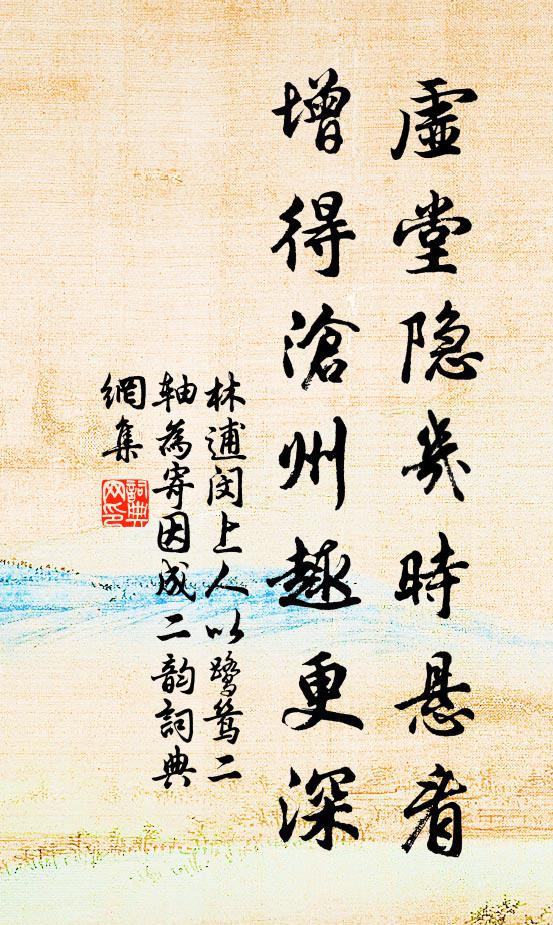 虛堂隐几時悬看
增得滄州趣更深
林逋闵上人以鹭鸶二
轴為寄因成二韵詞典
網集
詞典
网印